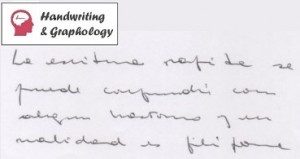 Handwriting
& Graphology
La escritura rápida se
puede confundir con
algun trastorno y en
realidad es filiforme